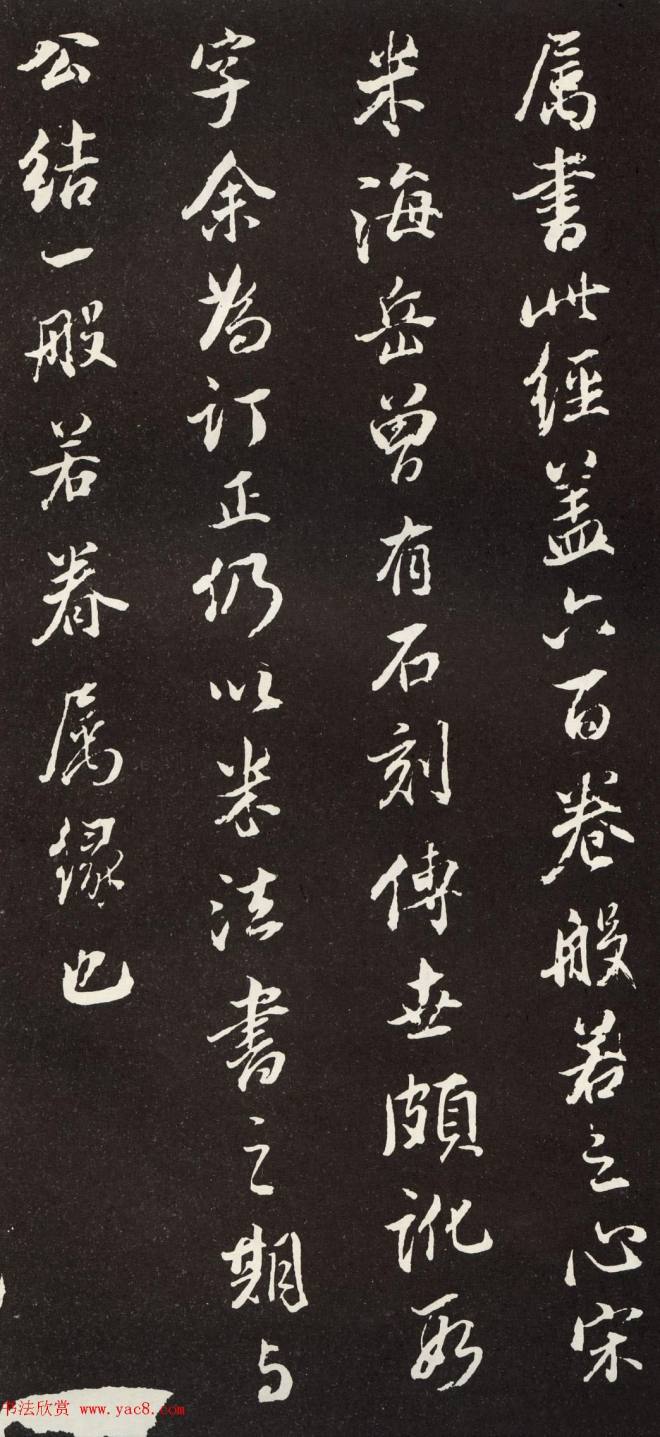 属書此經蓋六百卷般若之心宋
米海岳曾有石刻傳世頗訛數
字余為訂正仍以米法書之期与
公結一般若眷属縁也
书法欣赏 www.yac8.com